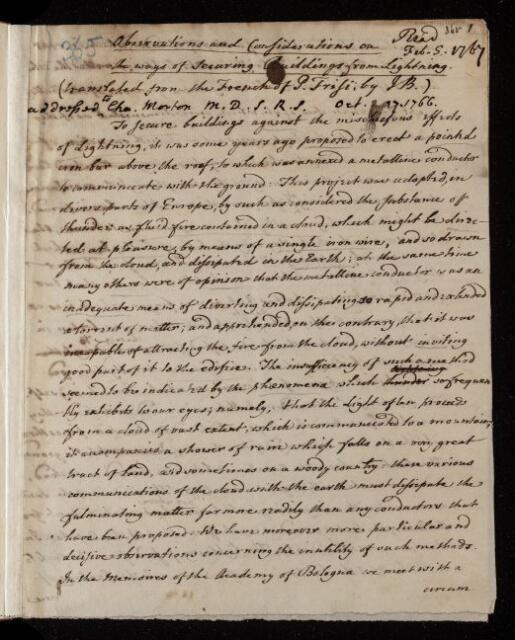 365
Read
Feb. 5. 1767
Observations and Considerations on
the ways of Securing Buildings from Lightning.
(translated from the French of P. Frisi, by J B.)
addressed to Cha. Morton M. D. S. R. S. Oct. 17. 1766.
To secure buildings against the mischievous effects
of Lightning, it was some years ago proposed to erect a pointed
iron bar above the roof, to which was annexed a metalline conductor
to communicate with the ground: This project was adopted, in
divers parts of Europe, by such as considered the substance of
thunder as fluid fire contained in a cloud, which might be direc-
ted at pleasure, by means of a single iron wire, and so drawn
from the cloud, and dissipated in the Earth; at the same time
many others were of opinion that the metalline conductor was an
inadequate means of diverting and dissipating so rapid and extended
a torrent of matter; and apprehended, on the contrary, that it was
incapable of attracting the fire from the cloud, without inviting
good part of it to the edifice. The insufficiency of such a method
seemed to be indicated by the phenomena which thunder so frequen
tly exhibits to our eyes; namely, that the Light often proceeds
from a cloud of vast extent, which is communicated to a mountain,
it accompanies a shower of rain which falls on a very great
tract of Land, and sometimes on a woody country: these various
communications of the cloud with the earth must dissipate the
fulminating matter far more readily than any conductors that
have been proposed. We have moreover more particular and
decisive observations concerning the inutility of such methods.
In the Memoires of the Academy of Bologna we meet with a
circum